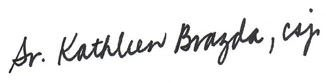 Sr. Kathleen Brazda, csj.